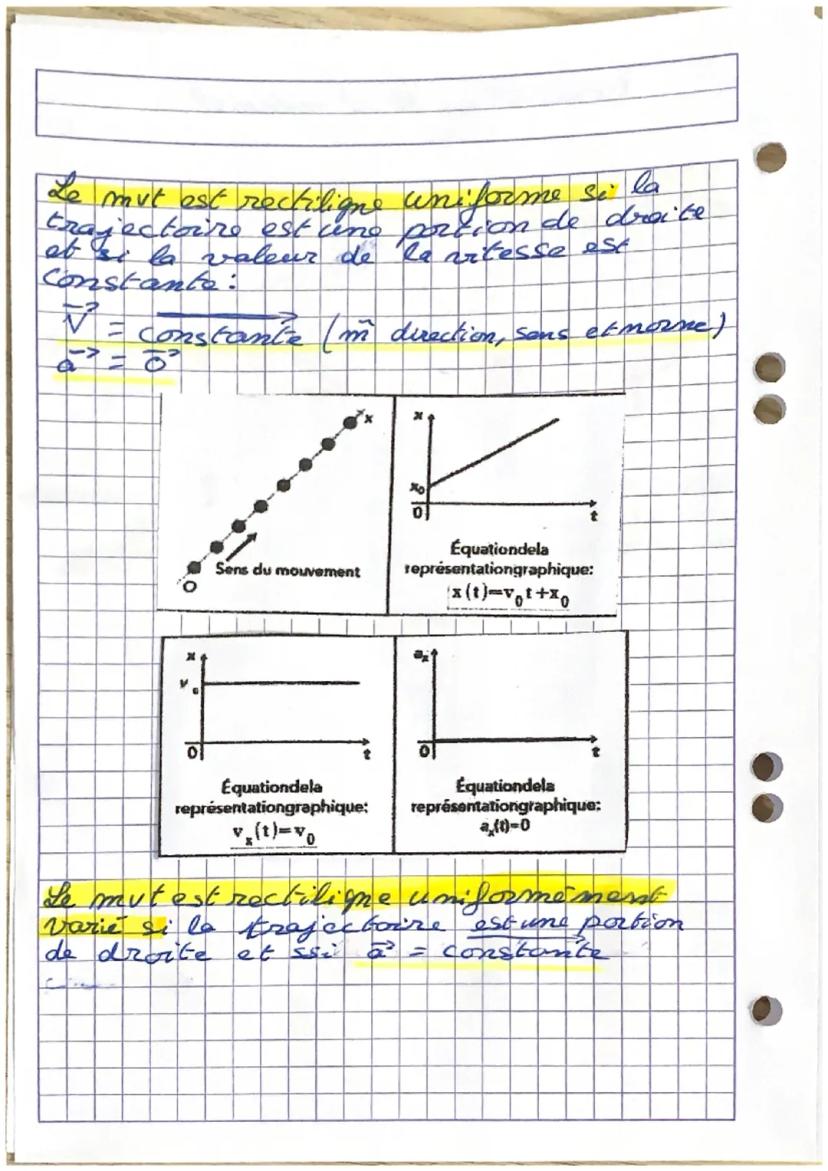 Le mvt est rectiligne uniforme si la
trajectoire est une portion de droite
et si la valeur de la vitesse est
constante :
V⃗ = constante (m̃ direction, sens et norme)
a⃗ = 0⃗
x
Sens du mouvement
O
x
x₀
0
t
Équationdela
représentationgraphique:
x(t)=v₀t+x₀
x
v₀
0
t
Équationdela
représentationgraphique:
vₓ(t)=v₀
aₓ
0
t
Équationdela
représentationgraphique:
aₓ(t)=0
Le mvt est rectiligne uniformément
varié si la trajectoire est une portion
de droite et ssi a⃗ = constante